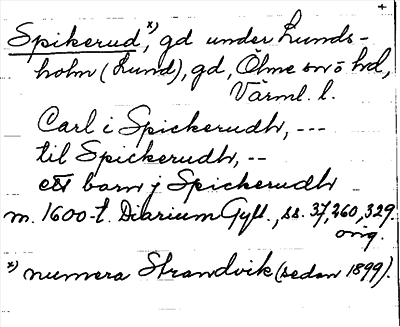 Spikerud,*) gd under Lunds-
holm (Lund), gd, Ölme sn o hd,
Värml. l.
Carl i Spickerudh, ---
til Spickerudh, --
ett barn j Spickerudh
m. 1600-t. Diarium Gyll., ss. 37, 260, 329.
orig.
*) numera Strandvik (sedan 1899).